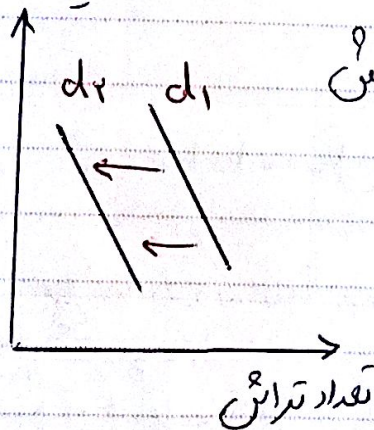 d۲ d۱
تعداد تراش